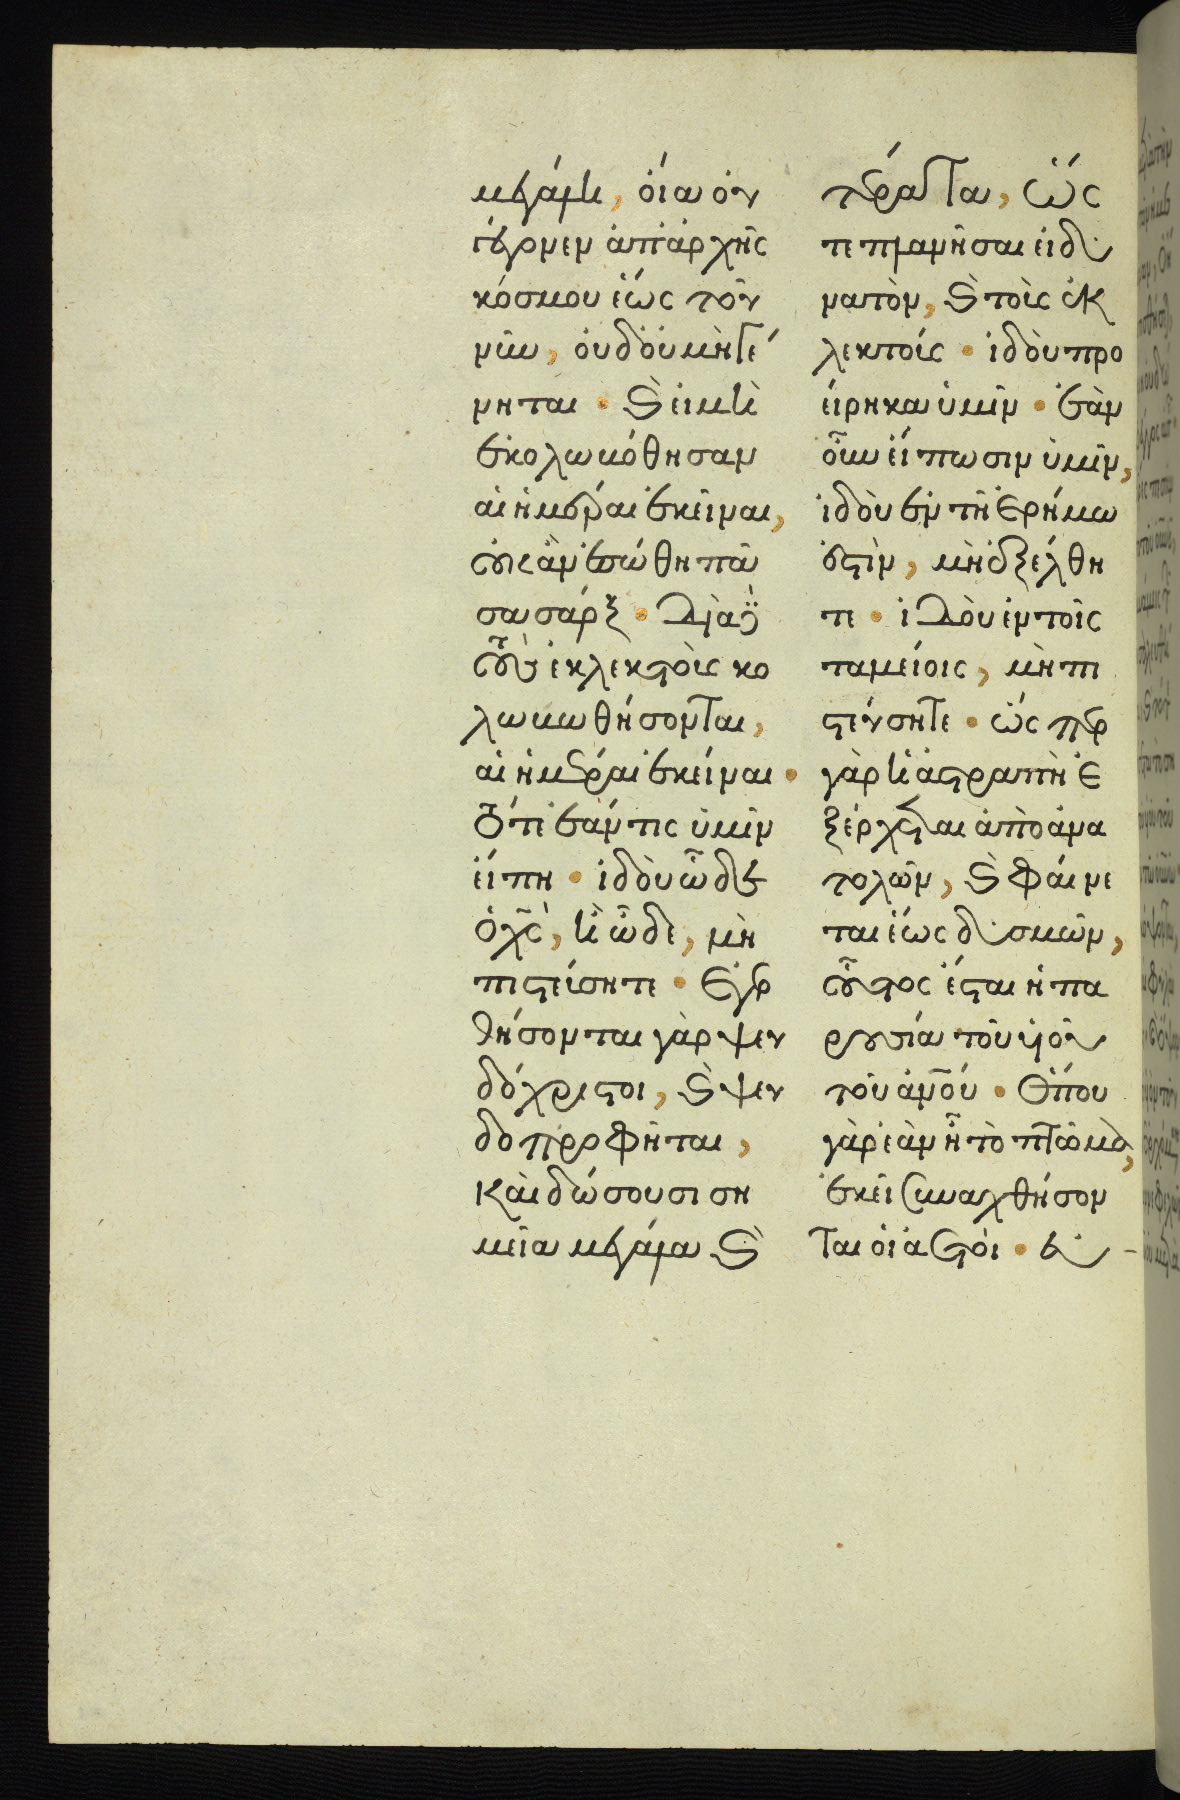 μεγάλη, οἵα οὐ
γέγονεν ἀπ' ἀρχῆς
κόσμου ἕως τοῦ
νῦν, οὐδ' οὐ μὴ γέ
νηται · καὶ εἰ μὴ
ἐκολωκόθησαν
αἱ ἡμέραι ἐκεῖναι,
οὐκ ἂν ἐσώθη πᾶ
σα σάρξ · Διὰ δὲ
τοὺς ἐκλεκτοὺς κο
λωκωθήσονται,
αἱ ἡμέραι ἐκείναι ·
Τότε ἐάν τις ὑμῖν
εἴπη · ἰδοὺ ὧδε
ὁ χς, ἢ ὧδε, μὴ
πιστεύσητε · Ἐγερ
θήσονται γὰρ ψευ
δόχριστοι, καὶ ψευ
δοπροφῆται,
καὶ δώσουσι ση
μεῖα μεγάλα καὶ
τέρατα, ὥς
τε πλανῆσαι εἰ δυ
νατὸν, καὶ τοὺς ἐκ
λεκτούς · ἰδοὺ προ
είρηκα ὑμῖν · ἐὰν
οὖν εἴπωσιν ὑμῖν,
ἰδοὺ ἐν τῆ ἐρήμω
ἐστὶν, μὴ ἐξέλθη
τε · ἰδοὺ ἐν τοῖς
ταμείοις, μὴ πι
στεύσητε · ὥσπερ
γὰρ ἡ ἀστραπὴ ἐ
ξέρχεται ἀπὸ ἀνα
τολῶν, καὶ φαίνε
ται ἕως δυσμῶν,
οὕτως ἔσται ἡ πα
ρουσία τοῦ υἱοῦ
τοῦ ἀνου · Ὅπου
γὰρ ἐὰν ἦ τὸ πτῶμα,
ἐκεῖ συναχθήσον
ται οἱ ἀετοί · εὐ